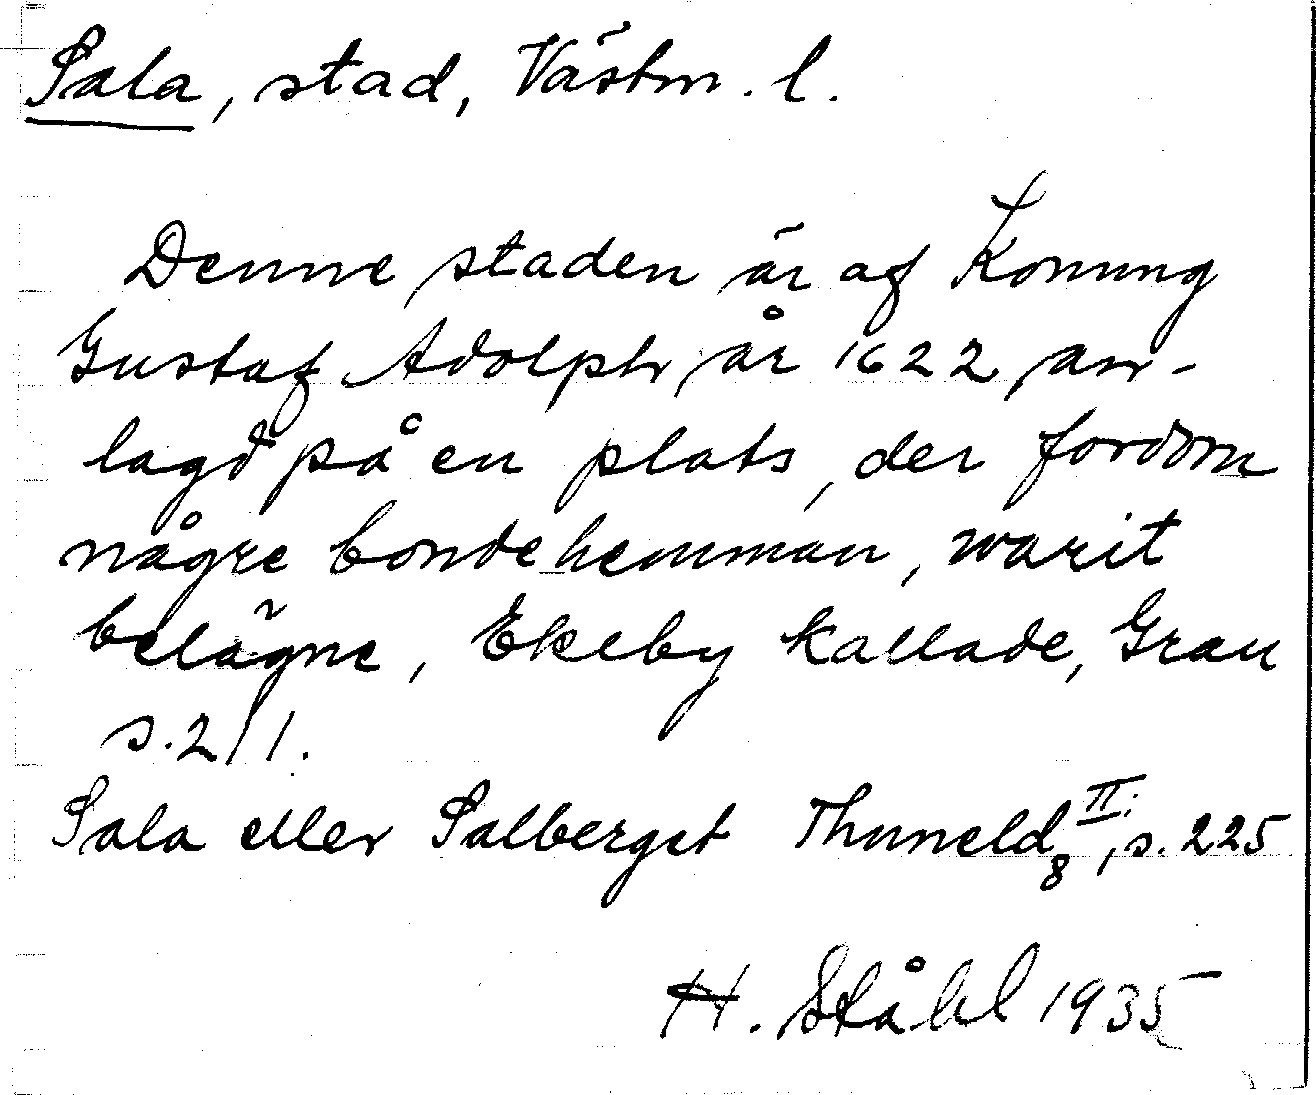 Sala, stad, Västm. l.
Denne staden är af Konung
Gustaf Adolph år 1622 an-
lagd på en plats, der fordom
någre bondehemman, warit
belägne, Ekeby kallade, Grau
s. 211.
Sala eller Salberget Thuneld8 II:, s. 225
H. Ståhl 1935